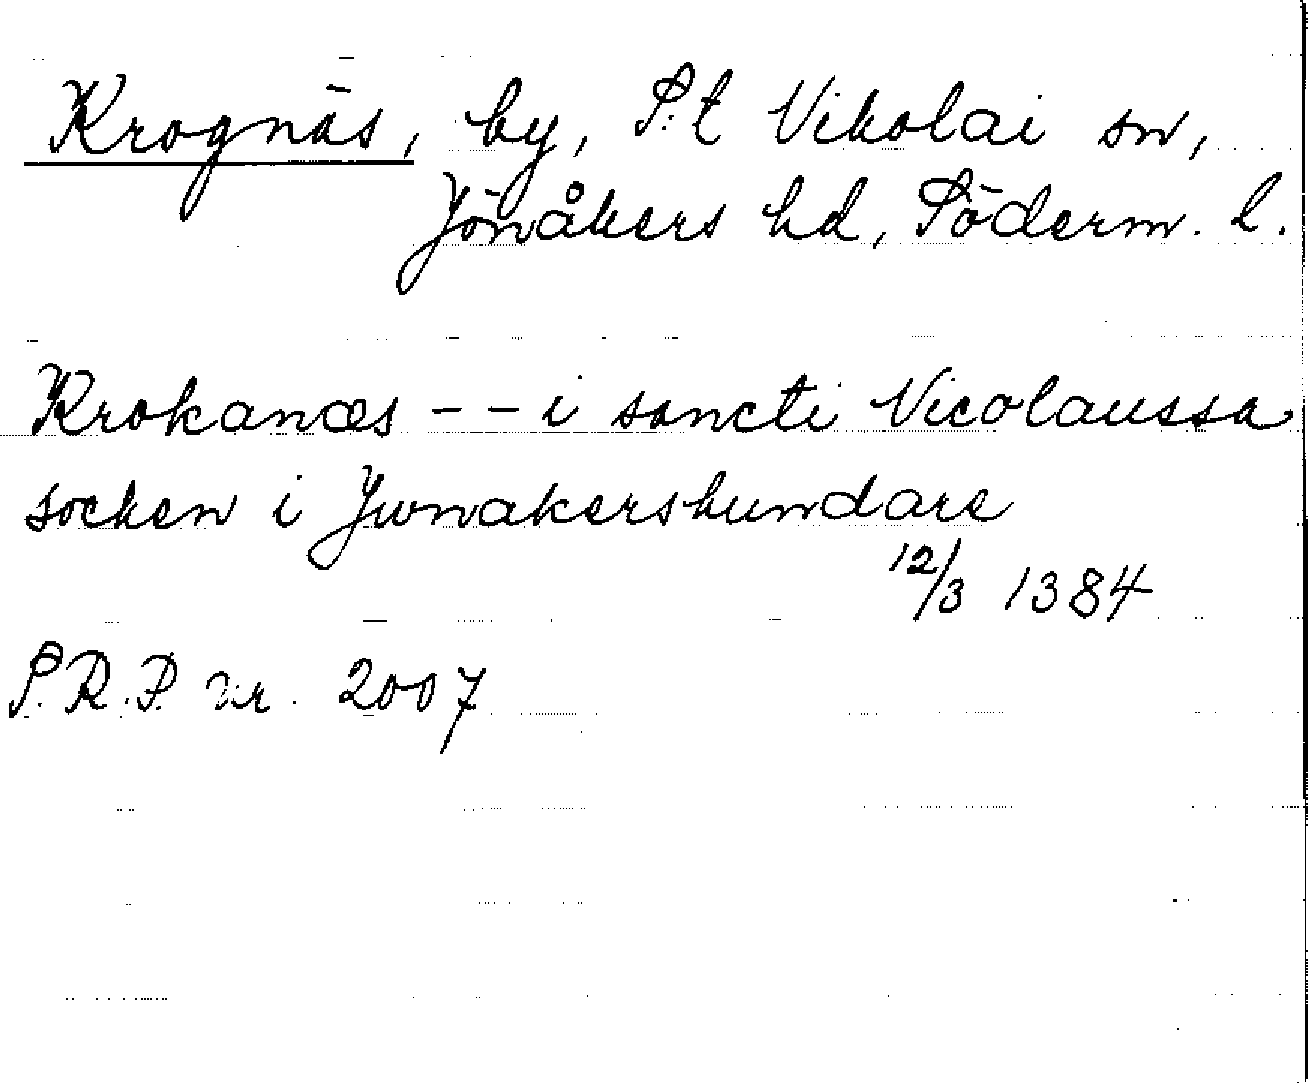 Krognäs, by, S:t Nikolai sn,
Jönåkers hd, Söderm. l.
Krokanæs - - i sancti Nicolaussa
socken i Jwnakershundare
12/3 1384
S.R.P. nr. 2007